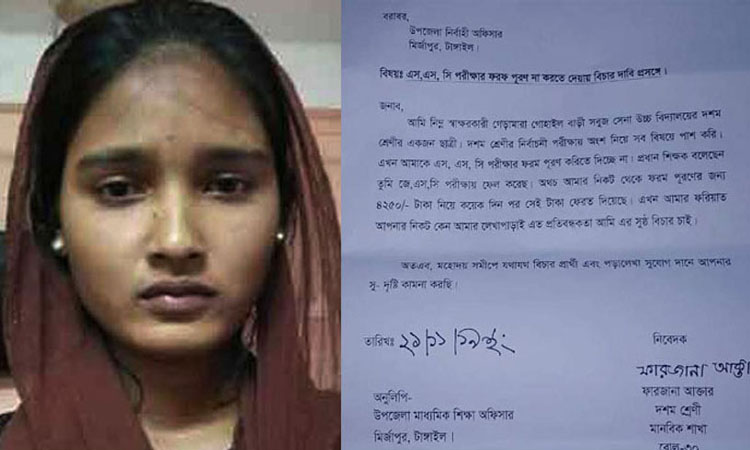 বরাবর,
উপজেলা নির্বাহী অফিসার
মির্জাপুর, টাঙ্গাইল।
বিষয়ঃ এস,এস, সি পরীক্ষার ফরফ পূরণ না করতে দেয়ায় বিচার দাবি প্রসঙ্গে।
জনাব,
আমি নিম্ন স্বাক্ষরকারী গেড়ামারা গোহাইল বাড়ী সবুজ সেনা উচ্চ বিদ্যালয়ের দশম
শ্রেণীর একজন ছাত্রী। দশম শ্রেণীর নির্বাচনী পরীক্ষায় অংশ নিয়ে সব বিষয়ে পাশ করি।
এখন আমাকে এস, এস, সি পরীক্ষার ফরম পূরণ করিতে দিচ্ছে না। প্রধান শিক্ষক বলেছেন
তুমি জে,এস,সি পরীক্ষায় ফেল করেছ। অথচ আমার নিকট থেকে ফরম পূরণের জন্য
৪২৫০/- টাকা নিয়ে কয়েক দিন পর সেই টাকা ফেরত দিয়েছে। এখন আমার ফরিয়াত
আপনার নিকট কেন আমার লেখাপাড়াই এত প্রতিবন্ধকতা আমি এর সুষ্ঠ বিচার চাই।
অতএব, মহোদয় সমীপে যথাযথ বিচার প্রার্থী এবং পড়ালেখা সুযোগ দানে আপনার
সু- দৃষ্টি কামনা করছি।
তারিখঃ ২১/১১/১৯ইং
নিবেদক
ফারজানা আক্তা
ফারজানা আক্তার
দশম শ্রেণী
মানবিক শাখা
রোল-৩০
অনুলিপি-
উপজেলা মাধ্যমিক শিক্ষা অফিসার
মির্জাপুর, টাঙ্গাইল।